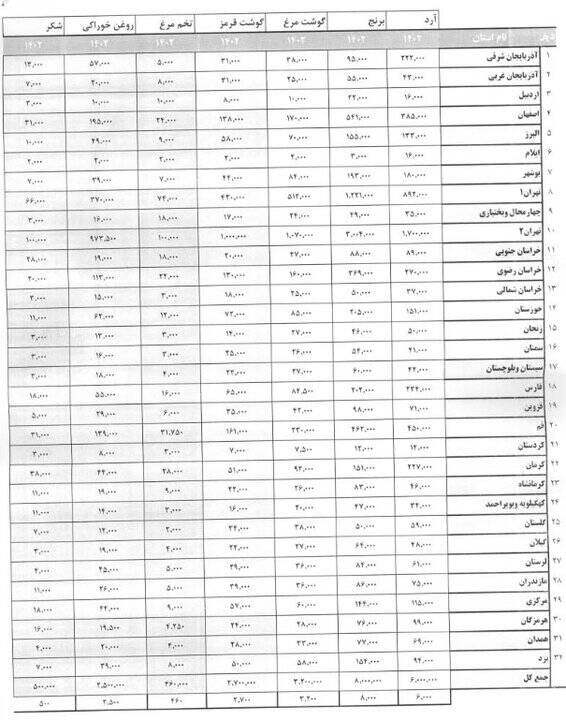 آرد برنج گوشت مرغ گوشت قرمز تخم مرغ روغن خوراکی شکر
ردیف نام استان ۱۴۰۲ ۱۴۰۲ ۱۴۰۲ ۱۴۰۲ ۱۴۰۲ ۱۴۰۲ ۱۴۰۲
۱ آذربایجان شرقی ۲۲۲،۰۰۰ ۹۵،۰۰۰ ۳۸،۰۰۰ ۳۱،۰۰۰ ۵،۰۰۰ ۵۷،۰۰۰ ۱۳،۰۰۰
۲ آذربایجان غربی ۴۳،۰۰۰ ۵۵،۰۰۰ ۲۵،۰۰۰ ۳۱،۰۰۰ ۸،۰۰۰ ۲۰،۰۰۰ ۷،۰۰۰
۳ اردبیل ۱۶،۰۰۰ ۲۲،۰۰۰ ۱۰،۰۰۰ ۸،۰۰۰ ۱۰،۰۰۰ ۱۰،۰۰۰ ۳،۰۰۰
۴ اصفهان ۳۸۵،۰۰۰ ۵۴۱،۰۰۰ ۱۷۰،۰۰۰ ۱۳۸،۰۰۰ ۲۴،۰۰۰ ۱۹۵،۰۰۰ ۳۱،۰۰۰
۵ البرز ۱۳۳،۰۰۰ ۱۵۵،۰۰۰ ۷۰،۰۰۰ ۵۸،۰۰۰ ۹،۰۰۰ ۴۹،۰۰۰ ۱۰،۰۰۰
۶ ایلام ۱۶،۰۰۰ ۳،۰۰۰ ۲،۰۰۰ ۲،۰۰۰ ۲،۰۰۰ ۲،۰۰۰ ۲،۰۰۰
۷ بوشهر ۱۸۰،۰۰۰ ۱۹۳،۰۰۰ ۸۴،۰۰۰ ۴۴،۰۰۰ ۷،۰۰۰ ۳۹،۰۰۰ ۷،۰۰۰
۸ تهران۱ ۸۹۲،۰۰۰ ۱،۲۲۱،۰۰۰ ۵۱۲،۰۰۰ ۴۳۰،۰۰۰ ۷۴،۰۰۰ ۳۷۰،۰۰۰ ۶۶،۰۰۰
۹ چهارمحال وبختیاری ۳۵،۰۰۰ ۴۹،۰۰۰ ۲۴،۰۰۰ ۱۷،۰۰۰ ۱۸،۰۰۰ ۱۶،۰۰۰ ۳،۰۰۰
۱۰ تهران۲ ۱،۷۰۰،۰۰۰ ۳،۰۰۴،۰۰۰ ۱،۰۷۰،۰۰۰ ۱،۰۰۰،۰۰۰ ۱۰۰،۰۰۰ ۹۷۳،۵۰۰ ۱۰۰،۰۰۰
۱۱ خراسان جنوبی ۸۹،۰۰۰ ۸۸،۰۰۰ ۲۷،۰۰۰ ۲۰،۰۰۰ ۱۸،۰۰۰ ۱۹،۰۰۰ ۲۸،۰۰۰
۱۲ خراسان رضوی ۲۷۰،۰۰۰ ۳۶۹،۰۰۰ ۱۶۰،۰۰۰ ۱۳۰،۰۰۰ ۲۲،۰۰۰ ۱۱۳،۰۰۰ ۲۰،۰۰۰
۱۳ خراسان شمالی ۳۷،۰۰۰ ۵۰،۰۰۰ ۲۵،۰۰۰ ۱۸،۰۰۰ ۳،۰۰۰ ۱۵،۰۰۰ ۳،۰۰۰
۱۴ خوزستان ۱۵۱،۰۰۰ ۲۰۵،۰۰۰ ۸۵،۰۰۰ ۷۲،۰۰۰ ۱۲،۰۰۰ ۶۲،۰۰۰ ۱۱،۰۰۰
۱۵ زنجان ۵۰،۰۰۰ ۴۶،۰۰۰ ۲۷،۰۰۰ ۱۴،۰۰۰ ۳،۰۰۰ ۱۳،۰۰۰ ۳،۰۰۰
۱۶ سمنان ۲۱،۰۰۰ ۵۴،۰۰۰ ۲۶،۰۰۰ ۲۵،۰۰۰ ۳،۰۰۰ ۱۶،۰۰۰ ۳،۰۰۰
۱۷ سیستان وبلوچستان ۴۴،۰۰۰ ۶۰،۰۰۰ ۲۷،۰۰۰ ۲۲،۰۰۰ ۴،۰۰۰ ۱۸،۰۰۰ ۳،۰۰۰
۱۸ فارس ۲۳۴،۰۰۰ ۲۰۲،۰۰۰ ۸۴،۵۰۰ ۶۵،۰۰۰ ۱۶،۰۰۰ ۵۵،۰۰۰ ۱۸،۰۰۰
۱۹ قزوین ۷۱،۰۰۰ ۹۸،۰۰۰ ۴۲،۰۰۰ ۳۵،۰۰۰ ۶،۰۰۰ ۲۹،۰۰۰ ۵،۰۰۰
۲۰ قم ۴۵۰،۰۰۰ ۴۶۳،۰۰۰ ۲۳۰،۰۰۰ ۱۶۱،۰۰۰ ۳۱،۷۵۰ ۱۳۹،۰۰۰ ۳۱،۰۰۰
۲۱ کردستان ۱۲،۰۰۰ ۱۲،۰۰۰ ۷،۵۰۰ ۷،۰۰۰ ۳،۰۰۰ ۸،۰۰۰ ۲،۰۰۰
۲۲ کرمان ۲۲۷،۰۰۰ ۱۵۱،۰۰۰ ۹۲،۰۰۰ ۵۱،۰۰۰ ۲۸،۰۰۰ ۴۴،۰۰۰ ۳۸،۰۰۰
۲۳ کرمانشاه ۴۶،۰۰۰ ۸۳،۰۰۰ ۲۶،۰۰۰ ۲۲،۰۰۰ ۹،۰۰۰ ۱۹،۰۰۰ ۱۱،۰۰۰
۲۴ کهگیلویه وبویراحمد ۳۴،۰۰۰ ۴۷،۰۰۰ ۲۰،۰۰۰ ۱۶،۰۰۰ ۳،۰۰۰ ۱۴،۰۰۰ ۱۱،۰۰۰
۲۵ گلستان ۵۹،۰۰۰ ۵۰،۰۰۰ ۳۸،۰۰۰ ۳۴،۰۰۰ ۳،۰۰۰ ۱۲،۰۰۰ ۷،۰۰۰
۲۶ گیلان ۴۸،۰۰۰ ۶۴،۰۰۰ ۲۷،۰۰۰ ۲۲،۰۰۰ ۴،۰۰۰ ۱۹،۰۰۰ ۳،۰۰۰
۲۷ لرستان ۶۱،۰۰۰ ۸۴،۰۰۰ ۳۶،۰۰۰ ۳۹،۰۰۰ ۵،۰۰۰ ۲۵،۰۰۰ ۴،۰۰۰
۲۸ مازندران ۷۵،۰۰۰ ۸۶،۰۰۰ ۳۶،۰۰۰ ۳۹،۰۰۰ ۵،۰۰۰ ۲۶،۰۰۰ ۱۱،۰۰۰
۲۹ مرکزی ۱۱۵،۰۰۰ ۱۴۴،۰۰۰ ۶۰،۰۰۰ ۵۷،۰۰۰ ۹،۰۰۰ ۴۴،۰۰۰ ۱۸،۰۰۰
۳۰ هرمزگان ۹۹،۰۰۰ ۷۶،۰۰۰ ۲۸،۰۰۰ ۲۴،۰۰۰ ۴،۲۵۰ ۱۹،۵۰۰ ۱۶،۰۰۰
۳۱ همدان ۶۹،۰۰۰ ۷۷،۰۰۰ ۳۳،۰۰۰ ۲۸،۰۰۰ ۴،۰۰۰ ۲۰،۰۰۰ ۴،۰۰۰
۳۲ یزد ۹۴،۰۰۰ ۱۵۴،۰۰۰ ۵۸،۰۰۰ ۵۰،۰۰۰ ۸،۰۰۰ ۳۹،۰۰۰ ۷،۰۰۰
جمع کل ۶،۰۰۰،۰۰۰ ۸،۰۰۰،۰۰۰ ۳،۲۰۰،۰۰۰ ۲،۷۰۰،۰۰۰ ۴۶۰،۰۰۰ ۲،۵۰۰،۰۰۰ ۵۰۰،۰۰۰
۶،۰۰۰ ۸،۰۰۰ ۳،۲۰۰ ۲،۷۰۰ ۴۶۰ ۲،۵۰۰ ۵۰۰